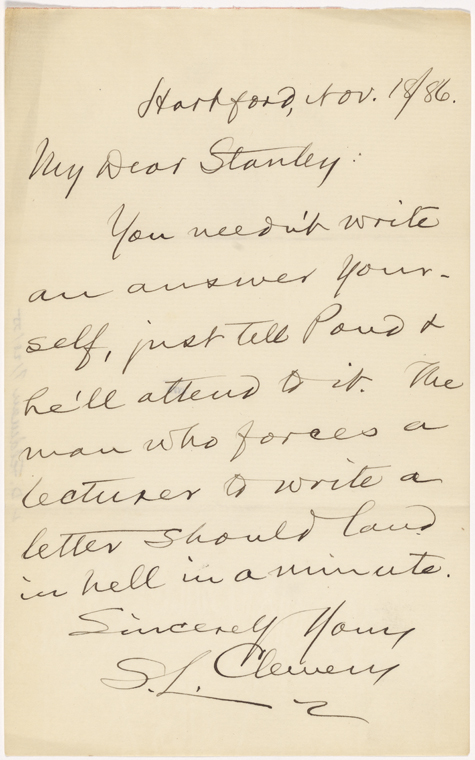 Hartford, Nov. 18/86.
My Dear Stanley:
You needn't write
an answer your-
self, just tell Pond &
he'll attend to it. The
man who forces a
lecturer to write a
letter should land
in hell in a minute.
Sincerely Yours
S. L. Clemens